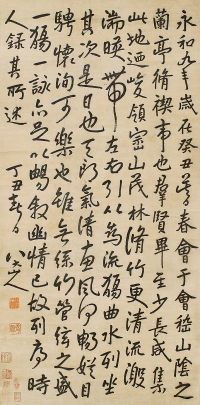 永和九年歲在癸丑暮春會于會稽山陰之
蘭亭脩禊事也群賢畢至少長咸集
此地迺峻領崇山茂林脩竹更清流激
湍暎帶左右引以為流觴曲水列坐
其次是日也天朗氣清惠風和暢娛目
騁懷洵可樂也雖無絲竹管弦之盛
一觴一詠亦足以暢敘幽情已故列序時
人錄其所述
丁丑春日 八大山人